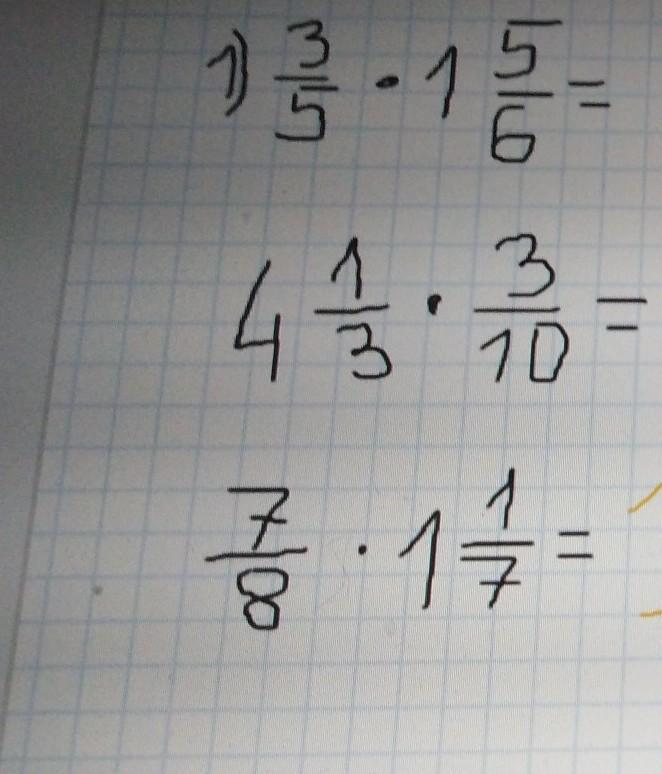 1) 3/5 · 1 5/6 =
4 1/3 · 3/10 =
7/8 · 1 1/7 =